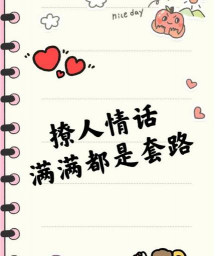 nice day
撩人情话
满满都是套路